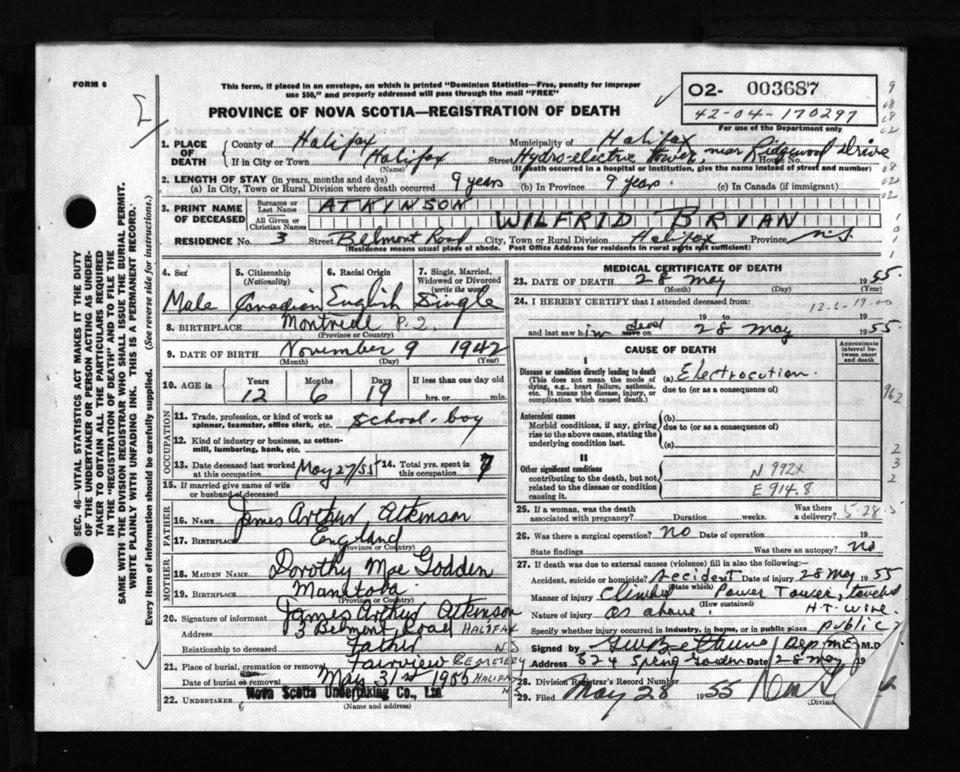 FORM 6
This form, if placed in an envelope, on which is printed "Dominion Statistics—Free, penalty for improper
use $50," and properly addressed will pass through the mail "FREE"
PROVINCE OF NOVA SCOTIA—REGISTRATION OF DEATH
02- 003687
42-04-170297
For use of the Department only
1. PLACE OF DEATH
County of Halifax Municipality of Halifax
If in City or Town Halifax (Name) Street Hydro-electric Tower, near Ridgewood Drive House No.
(If death occurred in a hospital or institution, give the name instead of street and number)
2. LENGTH OF STAY (in years, months and days)
(a) In City, Town or Rural Division where death occurred 9 years (b) In Province 9 years. (c) In Canada (if immigrant)
3. PRINT NAME OF DECEASED
Surname or Last Name ATKINSON
All Given or Christian Names WILFRID BRIAN
RESIDENCE No. 3 Street Belmont Road City, Town or Rural Division Halifax Province N.S.
(Residence means usual place of abode. Post Office Address for residents in rural parts not sufficient)
4. Sex Male
5. Citizenship (Nationality) Canadian
6. Racial Origin English
7. Single, Married, Widowed or Divorced (write the word) Single
8. BIRTHPLACE Montreal P.Q.
(Province or Country)
9. DATE OF BIRTH November 9 1942
(Month) (Day) (Year)
10. AGE in Years 12 Months 6 Days 19 If less than one day old hrs. or min.
OCCUPATION
11. Trade, profession, or kind of work as spinner, teamster, office clerk, etc. School-boy
12. Kind of industry or business, as cotton-mill, lumbering, bank, etc.
13. Date deceased last worked at this occupation May 27/55 14. Total yrs. spent in this occupation 7
15. If married give name of wife or husband of deceased
FATHER
16. NAME James Arthur Atkinson
17. BIRTHPLACE England
(Province or Country)
MOTHER
18. MAIDEN NAME Dorothy Mae Godden
19. BIRTHPLACE Manitoba
(Province or Country)
20. Signature of informant James Arthur Atkinson
Address 3 Belmont Road HALIFAX
Relationship to deceased Father N S
21. Place of burial, cremation or removal Fairview CEMETERY
Date of burial or removal May 31st 1955 HALIFAX
22. UNDERTAKER Nova Scotia Undertaking Co., Ltd N S
(Name and address)
MEDICAL CERTIFICATE OF DEATH
23. DATE OF DEATH 28 May 1955.
(Month) (Day) (Year)
24. I HEREBY CERTIFY that I attended deceased from:
19 to 19
and last saw him dead alive on 28 May 1955
CAUSE OF DEATH
Approximate interval between onset and death
I
Disease or condition directly leading to death
(This does not mean the mode of dying, e.g., heart failure, asthenia, etc. It means the disease, injury, or complication which caused death.)
(a) Electrocution.
due to (or as a consequence of)
Antecedent causes
Morbid conditions, if any, giving rise to the above cause, stating the underlying condition last.
(b)
due to (or as a consequence of)
(c)
II
Other significant conditions contributing to the death, but not related to the disease or condition causing it.
N 992X
E 914.8
25. If a woman, was the death associated with pregnancy? Duration weeks. Was there a delivery?
26. Was there a surgical operation? No Date of operation 19
State findings Was there an autopsy? No
27. If death was due to external causes (violence) fill in also the following:
Accident, suicide or homicide? Accident (State which) Date of injury 28 May 1955
Manner of injury Climbed Power Tower, touched
(How sustained)
Nature of injury as above, H.T. Wire.
Specify whether injury occurred in industry, in home, or in public place public
Signed by Dep M.E. M.D.
Address 324 Spring Garden Date 28 May 19
28. Division Registrar's Record Number
29. Filed May 28 1955
(Division
SEC. 46—VITAL STATISTICS ACT MAKES IT THE DUTY
OF THE UNDERTAKER OR PERSON ACTING AS UNDER-
TAKER TO OBTAIN ALL THE PARTICULARS REQUIRED
IN THE "REGISTRATION OF DEATH" AND TO FILE THE
SAME WITH THE DIVISION REGISTRAR WHO SHALL ISSUE THE BURIAL PERMIT.
WRITE PLAINLY WITH UNFADING INK. THIS IS A PERMANENT RECORD.
Every item of information should be carefully supplied. (See reverse side for instructions.)